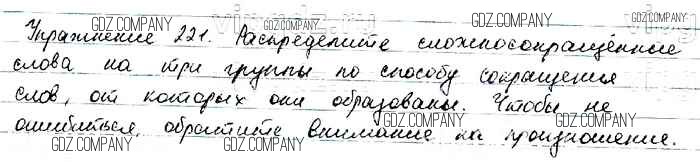 GDZ.COMPANY GDZ.COMPANY GDZ.COMPANY
Упражнение 221. Распределите сложносокращённые
слова на три группы по способу сокращения
GDZ.COMPANY GDZ.COMPANY GDZ.COMPANY
слов, от которых они образованы. Чтобы не
ошибиться, обратите внимание на произношение.
GDZ.COMPANY GDZ.COMPANY GDZ.COMPANY